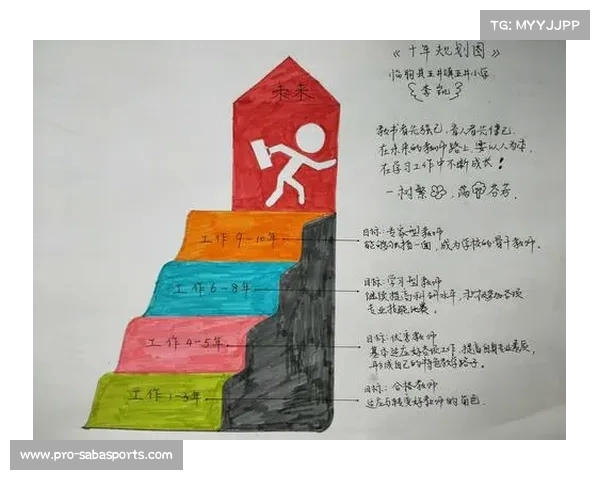 TG: MYYJJPP
《十年规划图》
临朐县五井镇五井小学
{李凯}
教书者先强己,育人者先律己。
在未来的教师路上,要以人为本,
在学习工作中不断成长!
一树繁 ,满 芬芳。
未来
工作9-10年
目标:专家型教师
能够独挡一面,成为学校的骨干教师。
工作6-8年
目标:学习型教师
继续提高科研水平,积极参加各级
专业技能比赛。
工作4-5年
目标:优秀教师
基本适应好各项工作,提高自身专业素质,
形成自己的特色教学路子。
工作1-3年
目标:合格教师
适应与转变好教师的角色.
www.pro-sabasports.com